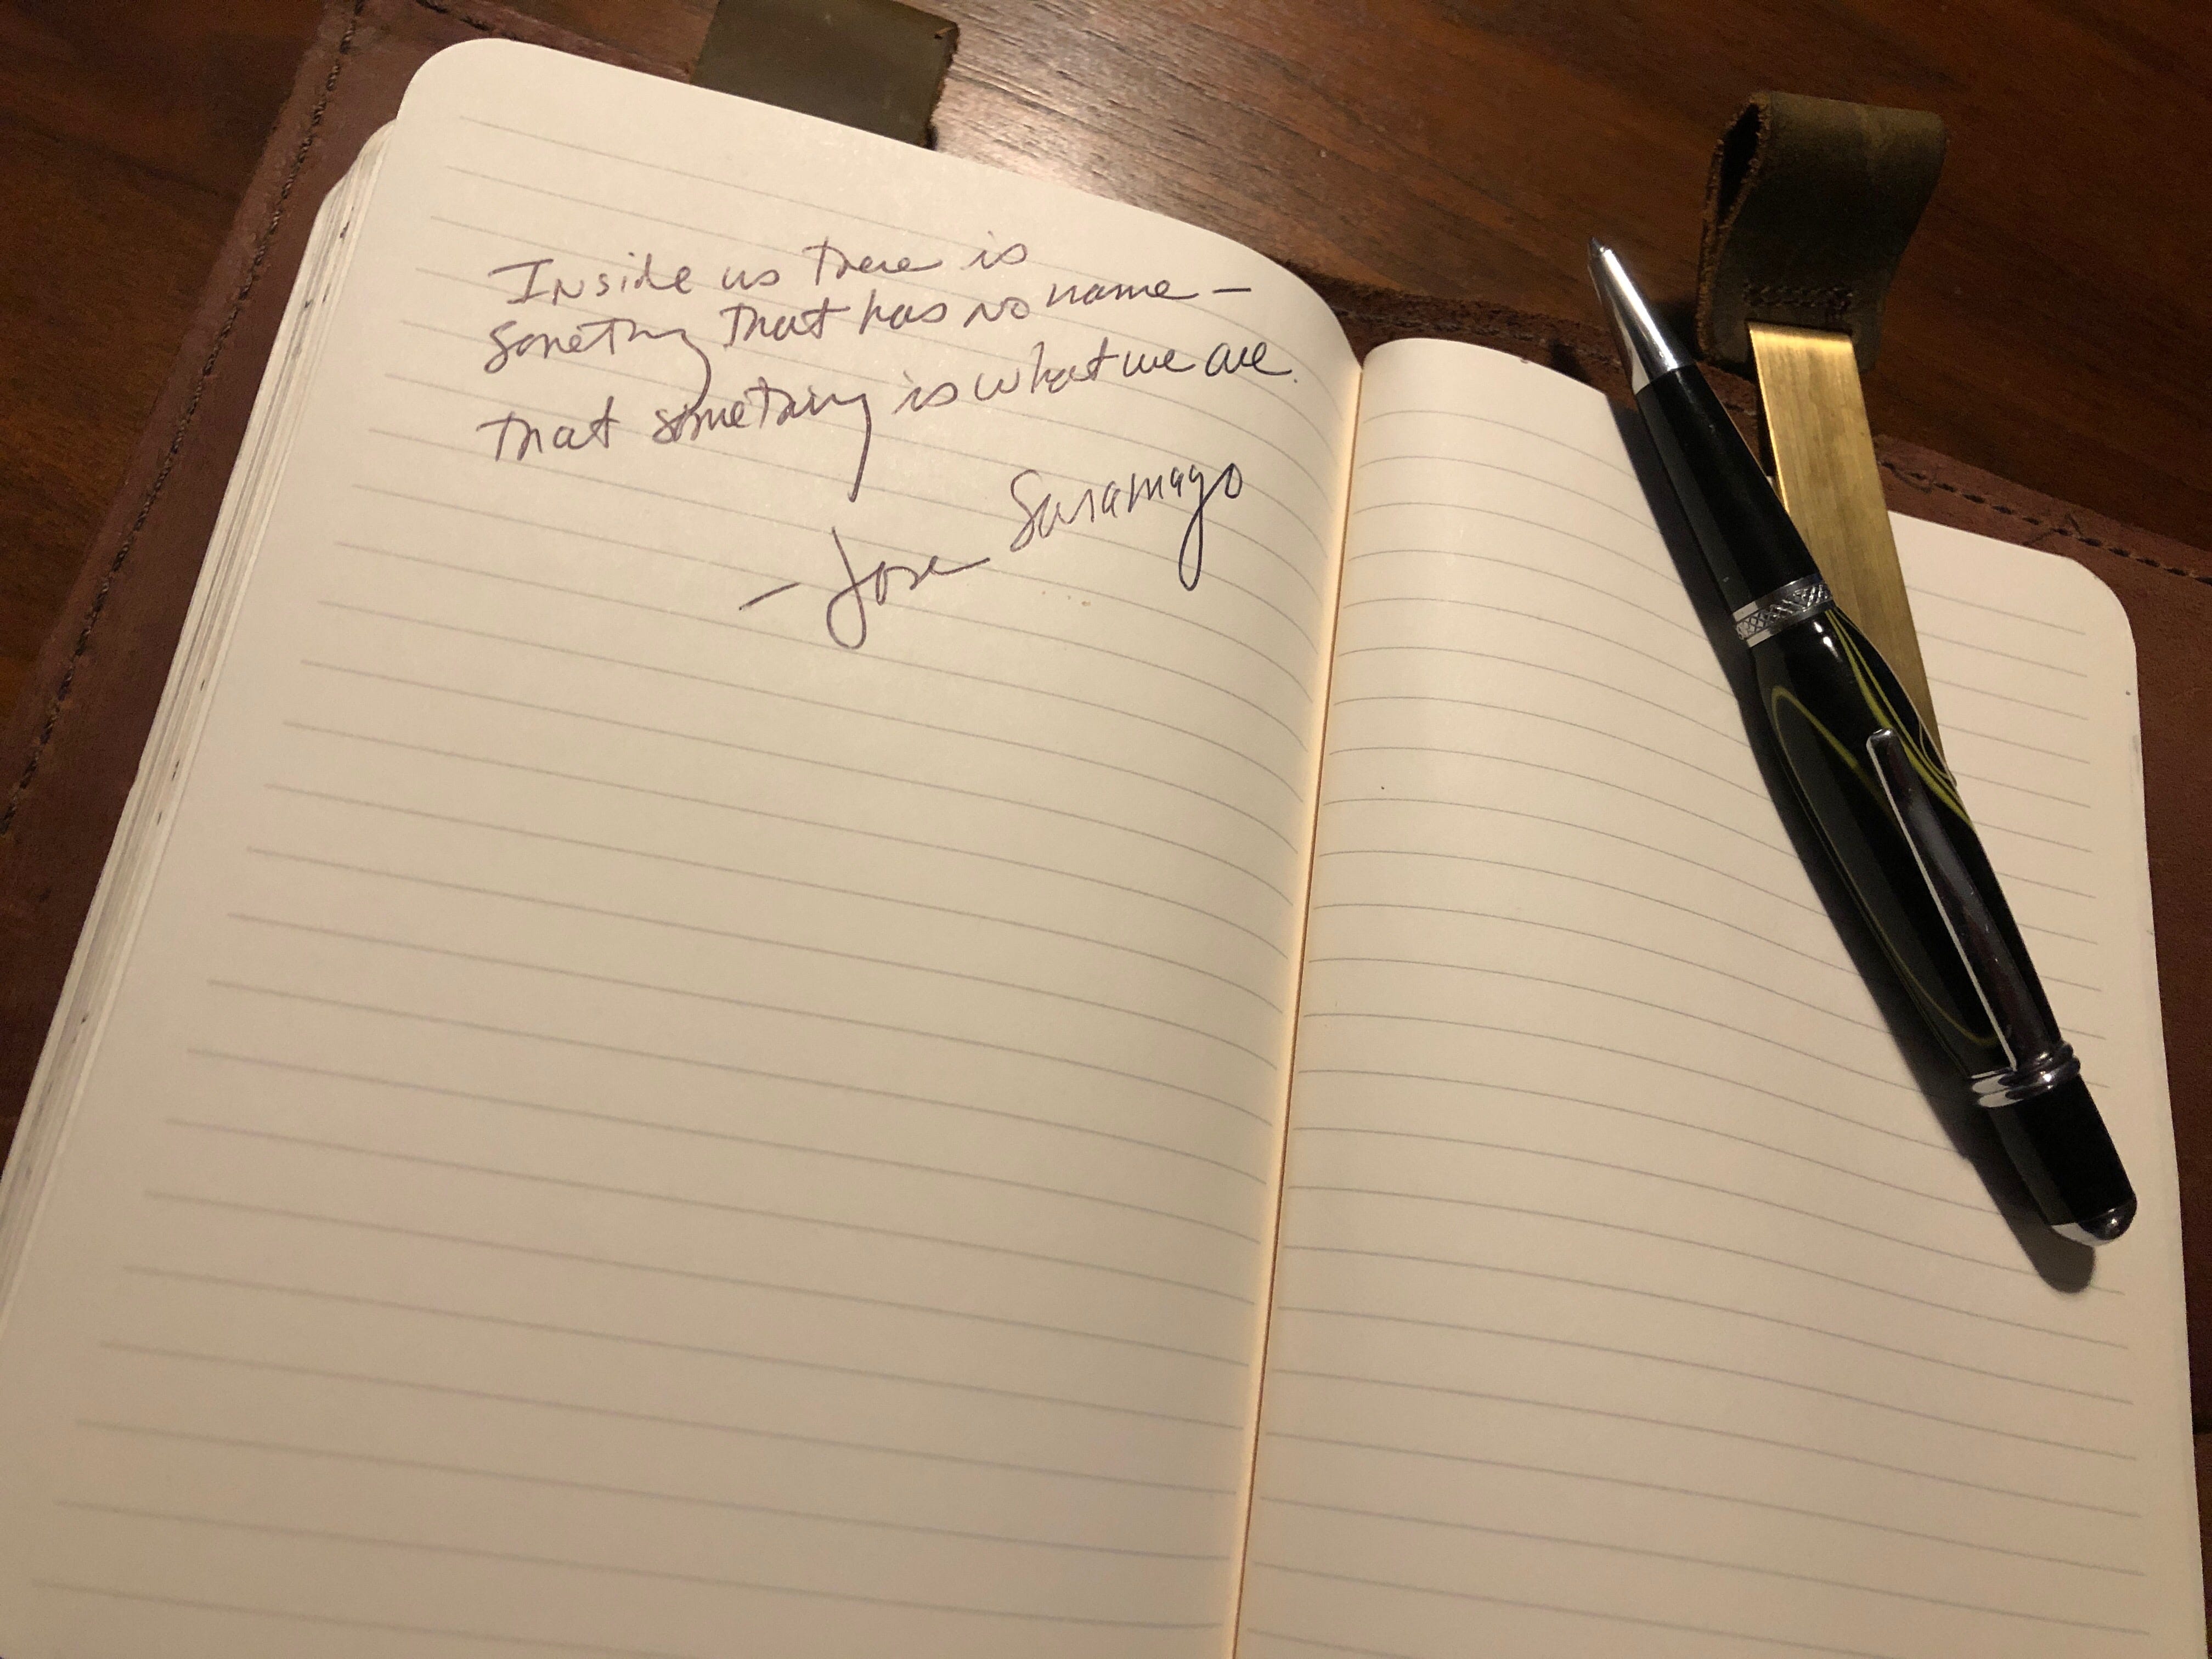 Inside us there is
something that has no name –
that something is what we are.
– Jose Saramago